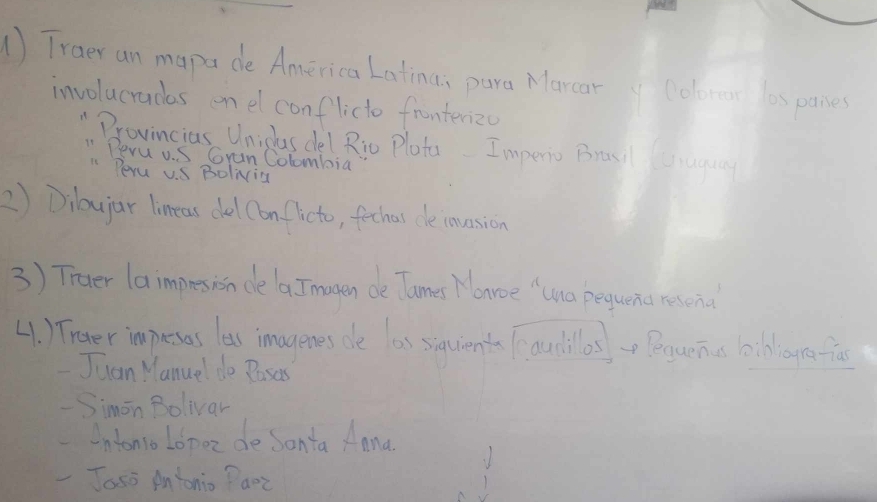 1) Traer un mapa de América Latina; para Marcar y Colorear los paises
involucrados en el conflicto fronterizo
"Provincias Unidas del Rio Plata - Imperio Brasil (Uruguay
" Peru v.s Gran Colombia"
" Peru v.s Bolivia
2) Dibujar lineas del Conflicto, fechas de invasión
3) Traer la impresión de la Imagen de James Monroe "una pequeña reseña"
4.) Traer impresas las imagenes de los siguients caudillos → Pequeñas bibliografias
- Juan Manuel de Rosas
- Simón Bolivar
- Antonio López de Santa Anna.
- José Antonio Paez